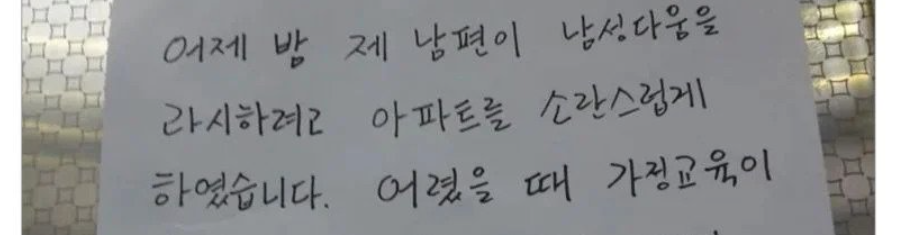 어제 밤 제 남편이 남성다움을
과시하려고 아파트를 소란스럽게
하였습니다. 어렸을 때 가정교육이